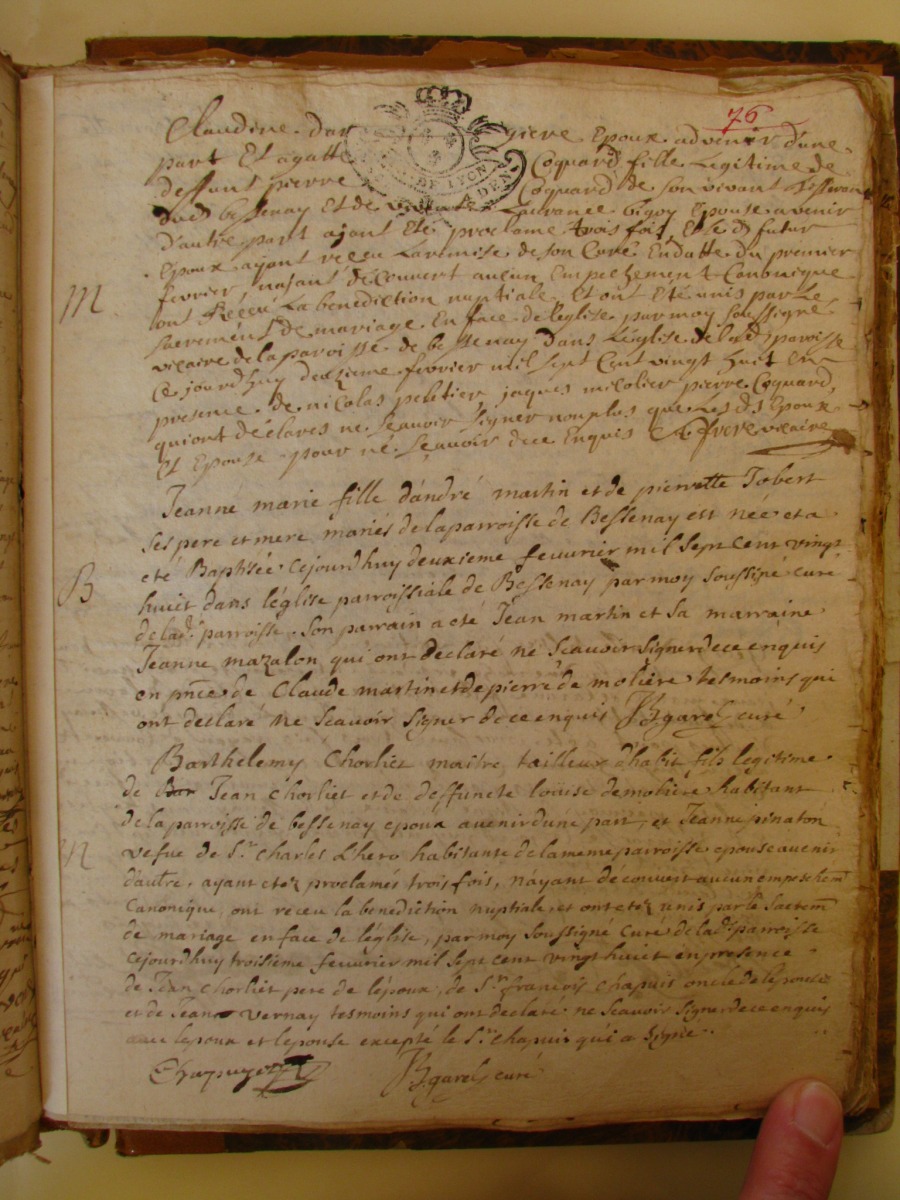 76
Claudine Dar giere Epoux advenir d'une
part Et agatte Coquard fille Legitime de
deffunt pierre Coquard de son vivant Tisseran
dud bessenay Et de vivante Laurance bigoy Epouse avenir
d'autre part ajant Eté proclamé trois fois, Et le d futur
Epoux ajant receu La remise de son Curé En datte du premier
fevrier najant découvert aucun Empechement Canonique
M
ont Receu La benediction nuptiale Et ont Eté unis par Le
sacrement de mariage En face de l'eglise par moy soussigné
vicaire de la paroisse de bessenay dans L'église de lad paroisse
Ce jourdhuy deuxieme fevrier mil sept Cent vingt huit En
presence de nicolas peletier jaques micolier pierre Coquard
qui ont déclarés ne sçauoir signer non plus que Les ds Epoux
Et Epouse pour ne sçauoir de ce Enquis frere vicaire
Jeanne marie fille d'andré martin et de pierrette Jobert
ses pere et mere mariés de la parroisse de Bessenay est née et a
B
eté Baptisée cejourdhuy deuxieme feuurier mil sept cent vingt
huict dans l'église parroissiale de Bessenay par moy soussigné curé
de lad. parroisse. Son parrain a eté Jean martin et sa marraine
Jeanne mazalon qui ont declaré ne scauoir signer de ce enquis
en pnce de Claude martin et de pierre de moliere tesmoins qui
ont declaré ne scauoir signer de ce enquis JBgarel curé
Barthelemy Chorliet maitre tailleur d'habit fils legitime
de Bar Jean Chorliet et de deffuncte louise demoliere habitant
de la parroisse de bessenay epoux auenir dune part, et Jeanne pinaton
vefue de Sr. Charles Lhero habitante de la meme parroisse epouse auenir
d'autre, ayant etez proclamés trois fois, n'ayant decouvert aucun empeschemt
canonique, ont receu la benediction nuptiale, et ont etez unis par le sacremt
de mariage en face de l'église, par moy soussigné curé de lad. parroisse
cejourdhuy troisieme feuurier mil sept cent vingt huict en presence
de Jean Chorliet pere de l'epoux, de Sr. françois Chapuis oncle de l'epouse
et de Jean vernay tesmoins qui ont declaré ne scauoir signer de ce enquis
auec l'epoux et l'epouse excepté le Sr. Chapuis qui a signé
Chapuys JBgarel curé